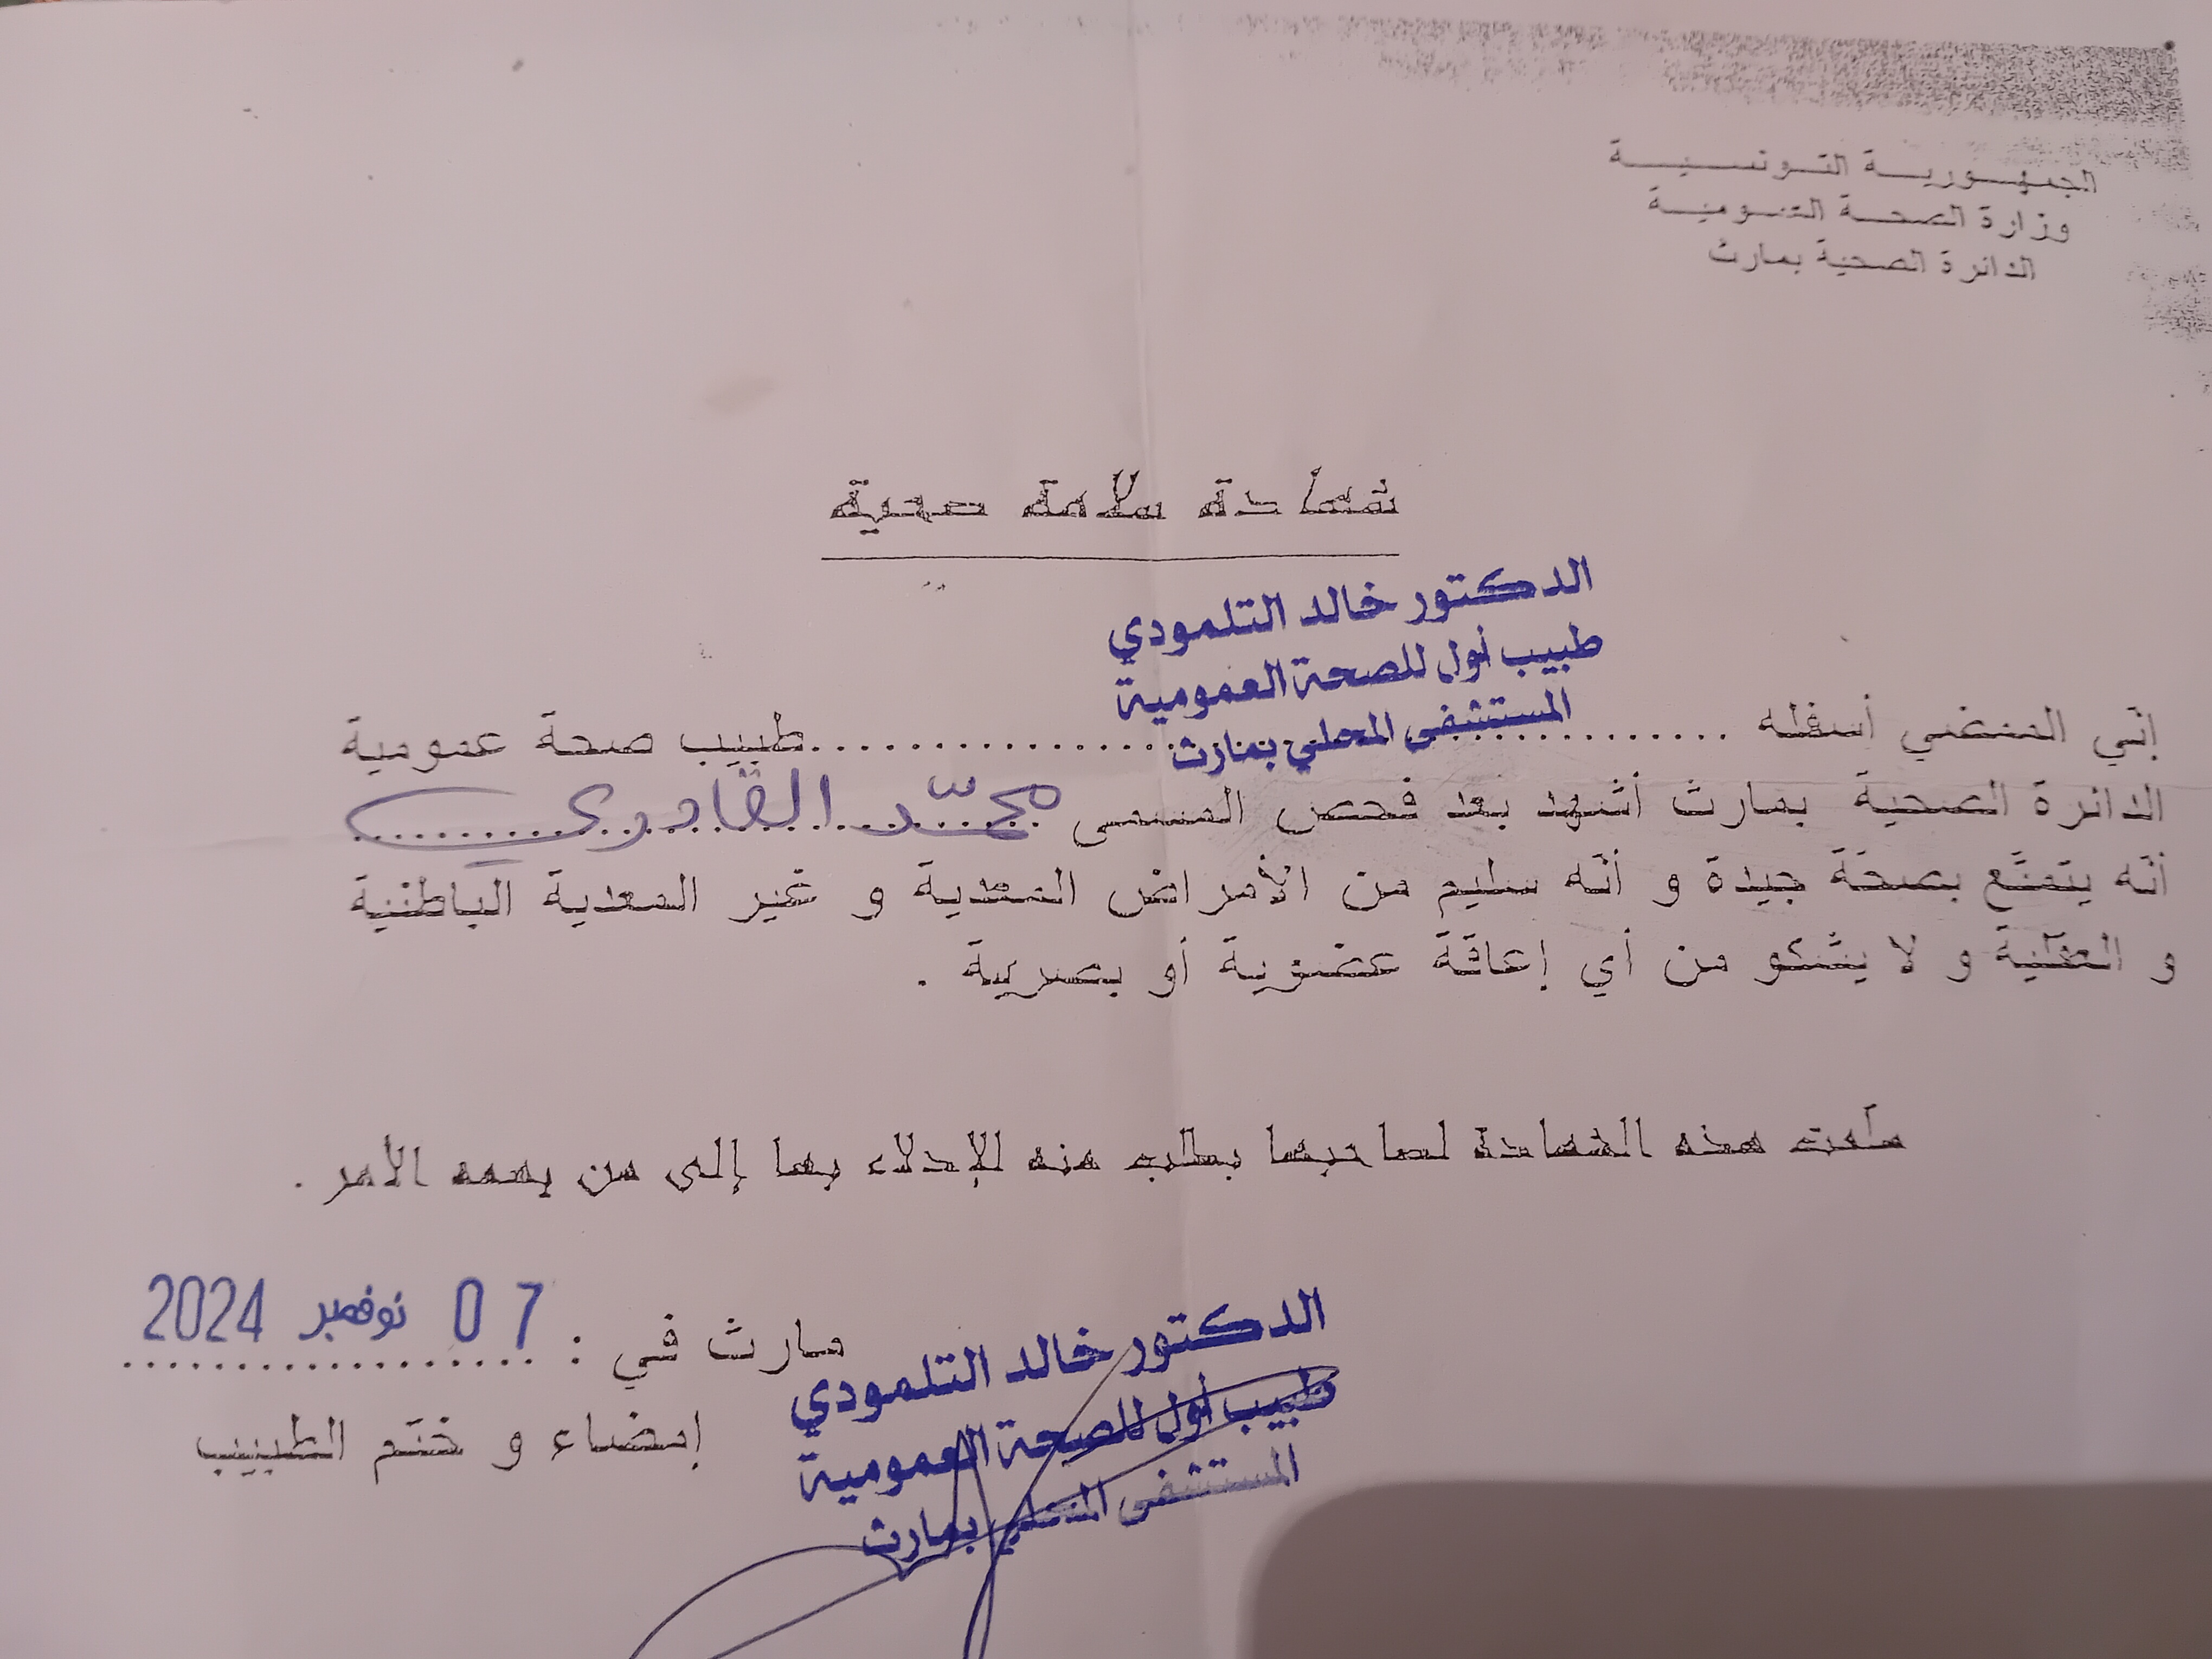 الجمهورية التونسية
وزارة الصحة العمومية
الدائرة الصحية بمارث
شهادة سلامة صحية
الدكتور خالد التلمودي
طبيب أول للصحة العمومية
المستشفى المحلي بمارث
إنّي الممضي أسفله .......................... طبيب صحة عمومية
الدائرة الصحية بمارث أشهد بعد فحص المسمى محمّد القادري
أنّه يتمتّع بصحّة جيدة و أنّه سليم من الأمراض المعدية و غير المعدية الباطنية
و العقلية و لا يشكو من أي إعاقة عضوية أو بصرية .
سلّمت هذه الشهادة لصاحبها بطلب منه للإدلاء بها إلى من يهمه الأمر .
مارث في : 07 نوفمبر 2024
إمضاء و ختم الطبيب
الدكتور خالد التلمودي
طبيب أول للصحة العمومية
المستشفى المحلي بمارث